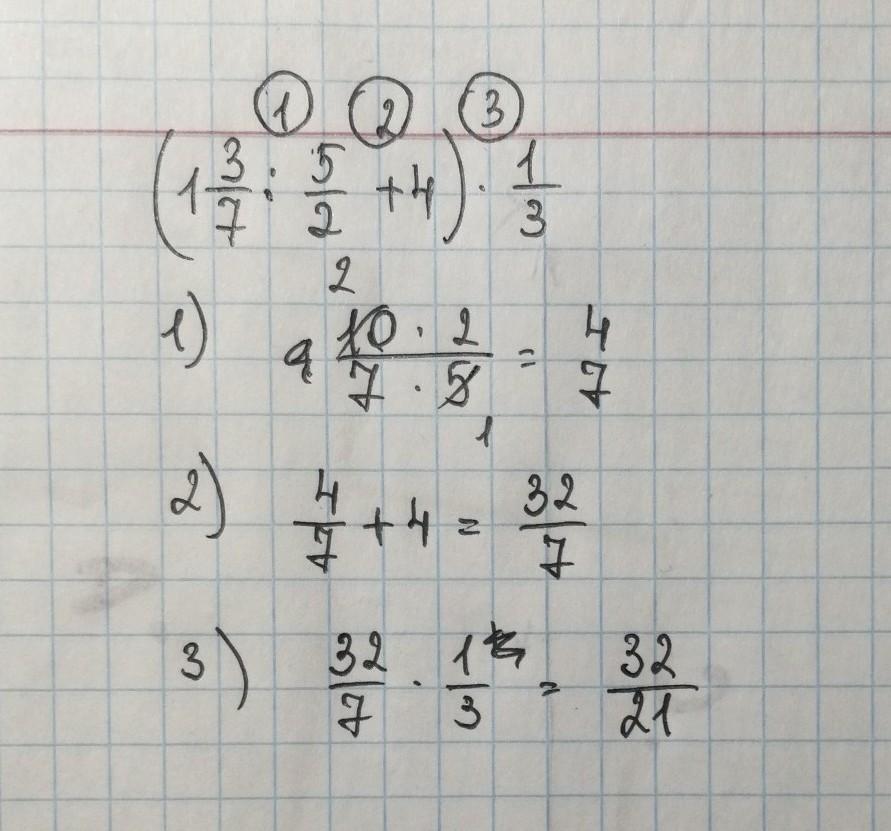 ① ② ③
(1 3/7 : 5/2 + 4) · 1/3
2
1) 10 · 2 / 7 · 5 = 4/7
1
2) 4/7 + 4 = 32/7
3) 32/7 · 1/3 = 32/21